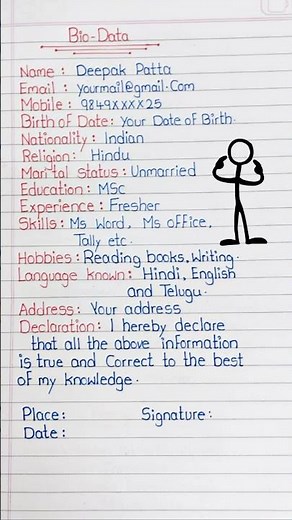 Bio-Data
Name : Deepak Patta
Email : yourmail@gmail.com
Mobile : 9849xxxx25
Birth of Date: Your Date of Birth.
Nationality : Indian
Religion: Hindu
Marital status : Unmarried
Education : MSc
Experience : Fresher
Skills : Ms Word, Ms office,
Tally etc.
Hobbies : Reading books, Writing.
Language known: Hindi, English
and Telugu.
Address : Your address
Declaration : I hereby declare
that all the above information
is true and Correct to the best
of my knowledge.
Place : Signature :
Date :